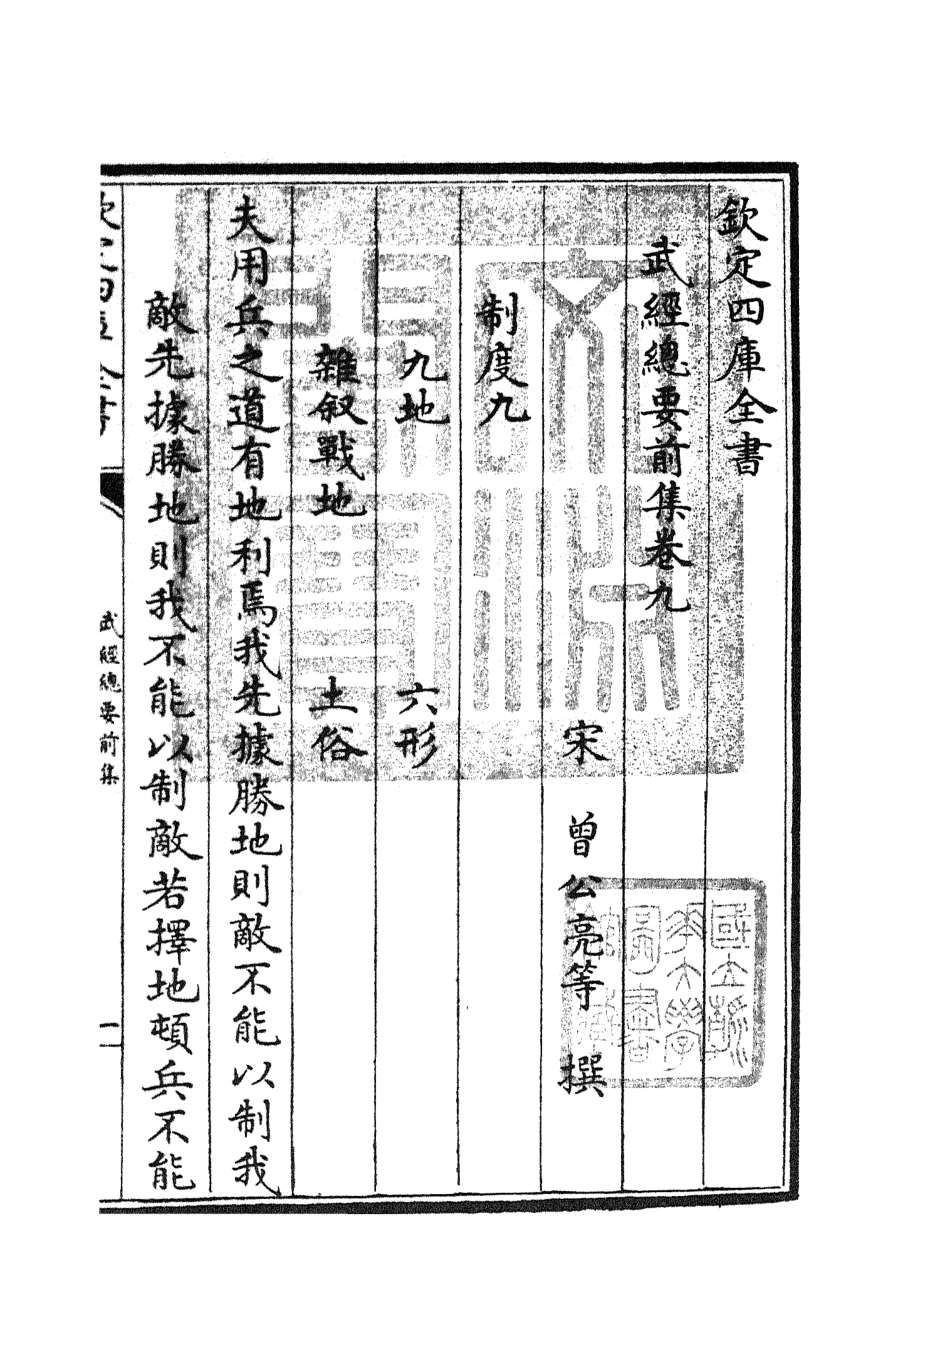 欽定四庫全書
武經總要前集卷九
宋 曾公亮等 撰
制度九
九地 六形
雜叙戰地 土俗
夫用兵之道有地利焉我先據勝地則敵不能以制我
敵先據勝地則我不能以制敵若擇地頓兵不能
欽定四庫全書
武經總要前集
一
文淵閣寶
國立浙江大學圖書館藏